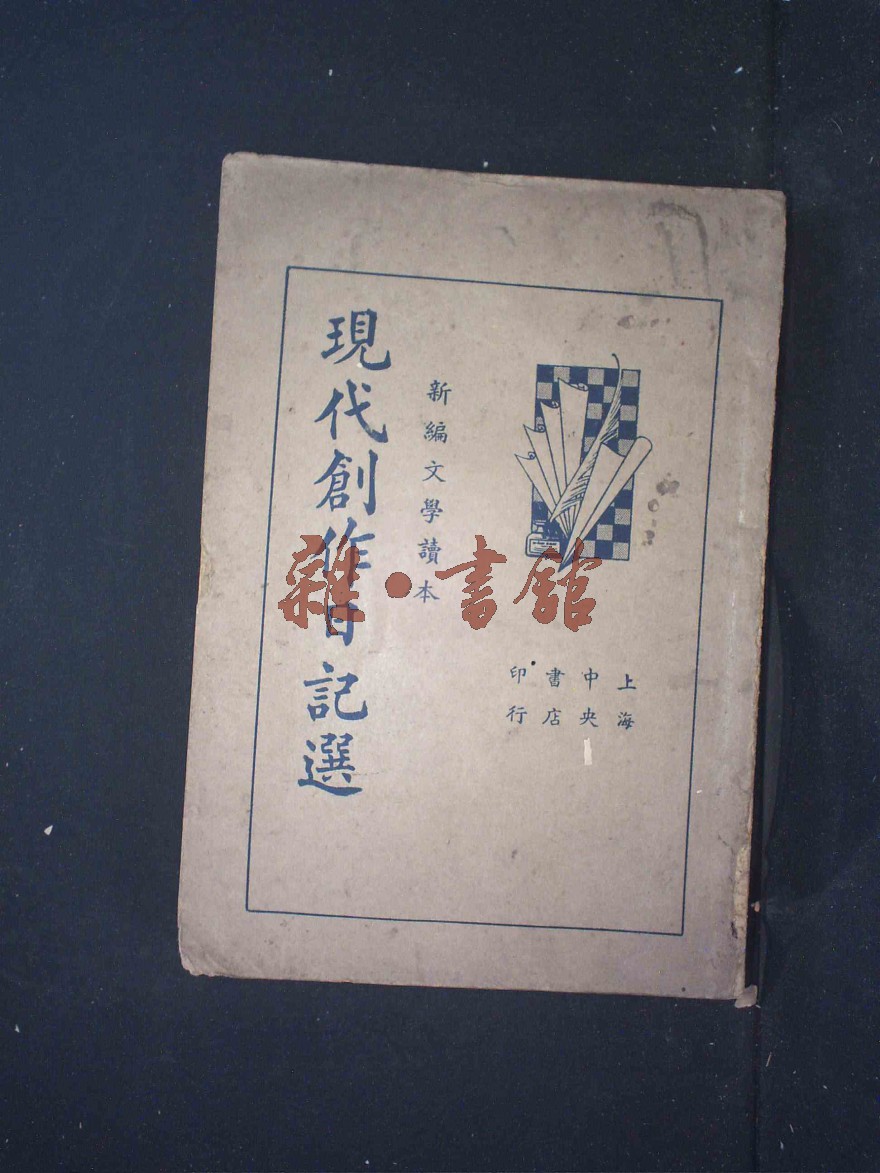 現代創作日記選
新編文學讀本
上海
中央
書店
印行
雜·書館